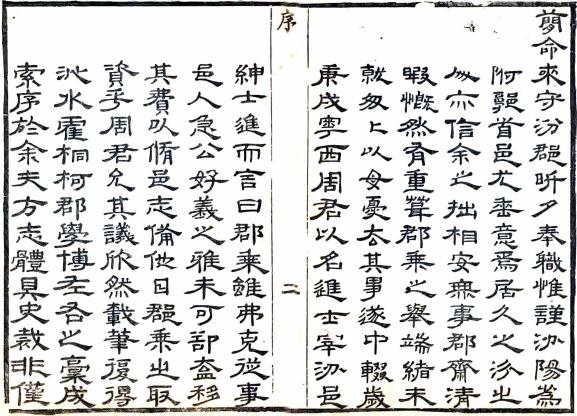 簡命來守汾郡昕夕奉職惟謹汾陽為
附郭首邑尤垂意焉居久之汾之
人亦信余之拙相安無事郡齋清
暇慨然有重葺郡乘之舉端緒未
就匆匆以母憂去其事遂中輟歲
庚戌粵西周君以名進士宰汾邑
序
二
紳士進而言曰郡乘雖弗克從事
邑人急公好義之雅未可卻盍移
其費以脩邑志備他日郡乘出取
資乎周君允其議欣然載筆復得
沁水霍桐柯郡學博左右之稾成
索序於余夫方志體具史裁非僅